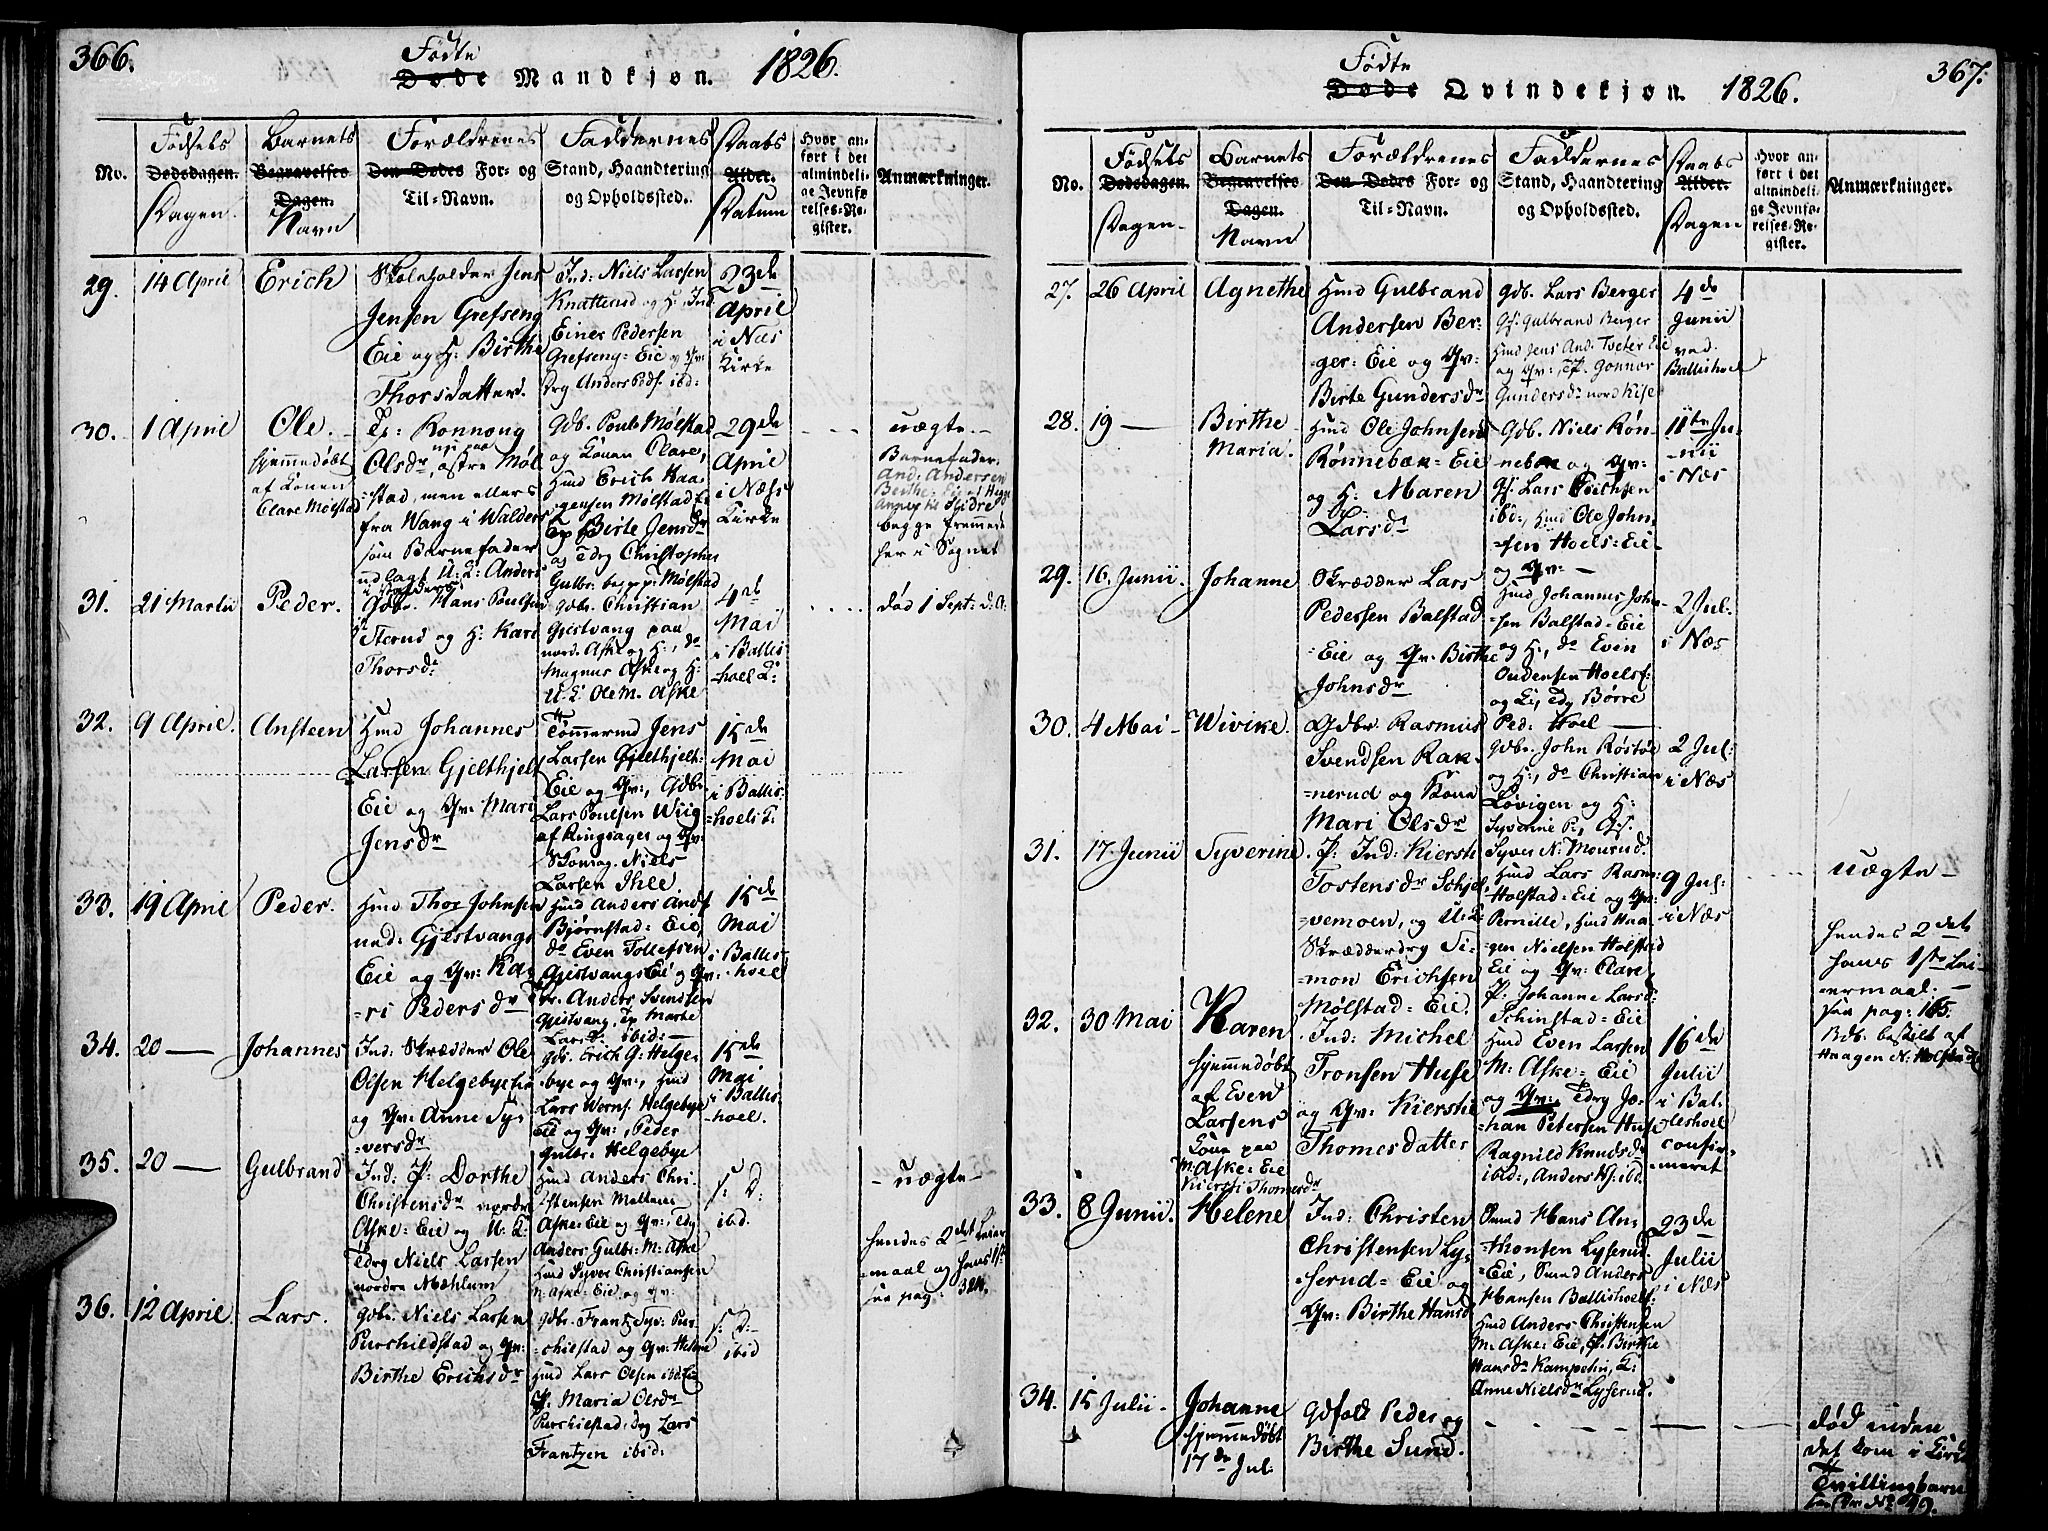 366.
Fødte
Døde Mandkjøn. 1826.
No.
Fødsels
Dødsdagen.
Dagen.
Barnets
Begravelses
Dagen.
Navn
Forældrenes
Den Dødes For- og
Til-Navn.
Faddernes
Stand, Haandtering
og Opholdssted.
Daabs
Alder.
Datum
Hvor an-
ført i det
almindeli-
ge Jevnfø-
relses-Re-
gister.
Anmærkninger.
29.
14 April
Erich
Skoleholder Jens
Jensen Grefseng
Eie og H: Birthe
Thorsdatter.
Ind: Niels Larsen
Knatterud og H, Ind
Einer Pedersen
Grefseng: Eie og Qv:
Drg Anders Peds. ibd:
23de
April
i Næs
Kirke
30.
1 April
Ole.
hjemmedøbt
af Konen
Clare Mølstad
Tp: Ronnoug
Olsdr, nu paa østre Møl
stad, men ellers
fra Wang i Walders
som Barnefader
udlagt U: K: Anders
Gdb. Poul Mølstad
og Konen Clare,
Huusd Erich Haa
gensen Mølstad Ei
Tp Birte Jensdr
og Tdrg Christopher
Gulbr. begge Mølstad
29de
April
i Næss
Kirke
uægte.
Barnefader
And. Andersen
begge fremmede
her i Sognet
31.
21 Martii
Peder.
Gdbr. Hans Poulsen
Sterud og H: Kari
Thorsdr
Gdbr. Christian
Gjestvang paa
nord. Aske og H:, do
Magnus Aske og H:
U. K: Ole M. Aske
4de
Mai
i Ballis-
hoel K:
død 1 Sept: d: A:
32.
9 April.
Ansteen
Huusd Johannes
Larsen Gjelthjelt
Eie og Qv: Mari
Jensdr
Tømmermd Jens
Larsen Gjelthjelt:
Eie og Qv:, Gdbr.
Lars Poulsen Wiig
af Ringsager og Qv:
Skomag. Niels
Larsen Ihle.
15de
Mai
i Ballis-
hoels K:
33.
19 April
Peder.
Huusd Thor Johnsen
ned: Gjestvangs
Eie og Qv: Ka
ri Pedersdr
Huusd Anders Ands
Bjørnstad: Eie,
do Even Tollefsen
Gjestvangs Eie og Qv:
Anders Svendsen
Gjestvang, Tp Marthe
Larsdr ibid:
15de
Mai
i Ballis-
hoel
34.
20 —
Johannes
Ind: Skrædder Ole
Olsen Helgebye Eie
og Qv: Anne Sy-
versdr
Gdb. Erich G: Helge-
bye og Qv:, Huusd
Lars Werns. Helgebye
Eie og Qv:, Peder
Helgebye
15de
Mai
i Ballis-
hoel.
35.
20 —
Gulbrand
Ind: P: Dorthe
Christensdr nordre
Aske: Eie og U: K:
Tdrg Niels Larsen
nordre Mæhlum
Huusd Anders Chri-
stensen Mellem
Aske: Eie og Qv:, Tdrg
Anders Gulb: M: Aske
Huusd Syver Christiansen
M: Aske: Eie og Qv:
s: D:
ibid.
uægte
hendes 2det Leier
maal og hans 1ste
see pag: 324.
36.
12 April.
Lars.
Gdbr. Niels Larsen
Purchildstad og Qv:
Birthe Erichsdr
Gdbr. Frantz Syv: Pur-
chilstad og Qv: Helene
Huusd Lars Olsen ibd Eie
P. Maria Olsdr
Purchilstad, Drg Lars
Frantzen ibid:
s: D:
ibid
367.
Fødte
Døde Qvindekjøn. 1826.
No.
Fødsels
Dødsdagen.
Dagen.
Barnets
Begravelses
Dagen.
Navn
Forældrenes
Den Dødes For- og
Til-Navn.
Faddernes
Stand, Haandtering
og Opholdssted.
Daabs
Alder.
Dagen
Hvor an-
ført i det
almindeli-
ge Jevnfø-
relses-Re-
gister.
Anmærkninger.
27.
26 April
Agnethe
Huusd Gulbrand
Andersen Ber-
ger: Eie og Qv:
Birte Gundersdr
Gdb. Lars Berger
Gs: Gulbrand Berger
Huusd Jens And. Tveter Eie
og Qv:, P. Gonnor
Gundersdr nord Kise
4de
Junii
ved
Ballishoel
28.
19 —
Birthe
Maria.
Huusd Ole Johnsen
Rønnebæk: Eie
og H: Maren
Larsdr
Gdb. Niels Røn-
nebæk og Qv:
Gs: Lars Erichsen
ibd:, Huusd Ole John-
sen Hoels: Eie
og Qv: —
11te Ju-
nii
i Næs
29.
16 Junii.
Johanne
Skrædder Lars
Pedersen Balstad
Eie og Qv: Birthe
Johnsdr
Huusd Johannes John-
sen Balstad: Eie
og H:, do Even
Andersen Hoels:
og Ei, Tdrg Børre
Ped: Hoel —
2 Jul:
i Næs
30.
4 Mai
Wivike.
Gdbr Rasmus
Svendsen Rak-
nerud og Kone
Mari Olsdr
Gdbr. John Røstøe
og H:, do Christian
Løvigen og H:
Syverine P:, Gs.
Syver N: Monrud.
2 Jul:
i Næs
31.
17 Junii
Syverine.
P: Ind: Kiersti
Tostensdr Schjel-
vemoen, og U: K:
Skrædderdrg Si-
mon Erichsen
Mølstad: Eie.
Huusd Lars Rasm:
Holstad: Eie og Qv:
Pernille, Huusd Haa
gen Nielsen Holstad
Eie og Qv: Clare
P: Johanne Larsd:
Schinstad: Eie
9 Jul:
i Næs
uægte
hendes 2det
hans 1ste Lei-
ermaal. —
see pag: 165.
Haagen N: Holstad
32.
30 Mai
Karen
hjemmedøbt
af Even
Larsens
Kone paa
M: Aske: Eie
Kiersti Thomesdr
Ind: Michel
Tronsen Huse
og Qv: Kierstie
Thomesdatter
Huusd Even Larsen
M: Aske: Eie
og Qv:, Tdrg Jo-
han Petersen Huse
Ragnild Knudsdr
ibid:, Anders Kj: ibd.
16de
Julii
i Bal-
leshoel
confir-
meret
33.
8 Junii.
Helene
Ind: Christen
Christensen Ly-
serud: Eie og
Qv: Birthe Hansdr
Smed Hans An-
thonsen Lyserud
Eie, Smed Anders
Hansen Ballishoel:
Huusd Anders Christensen
M: Aske: Eie, P. Birthe
Hansdr Kampelin, K:
Anne Nielsdr Lyserud.
23de
Julii
i Næs
34.
15 Julii
Johanne
hjemmedøbt
17de Jul:
Gdfolk Peder og
Birthe Sund.
død inden
det kom i Kirke
Tvillingbarn